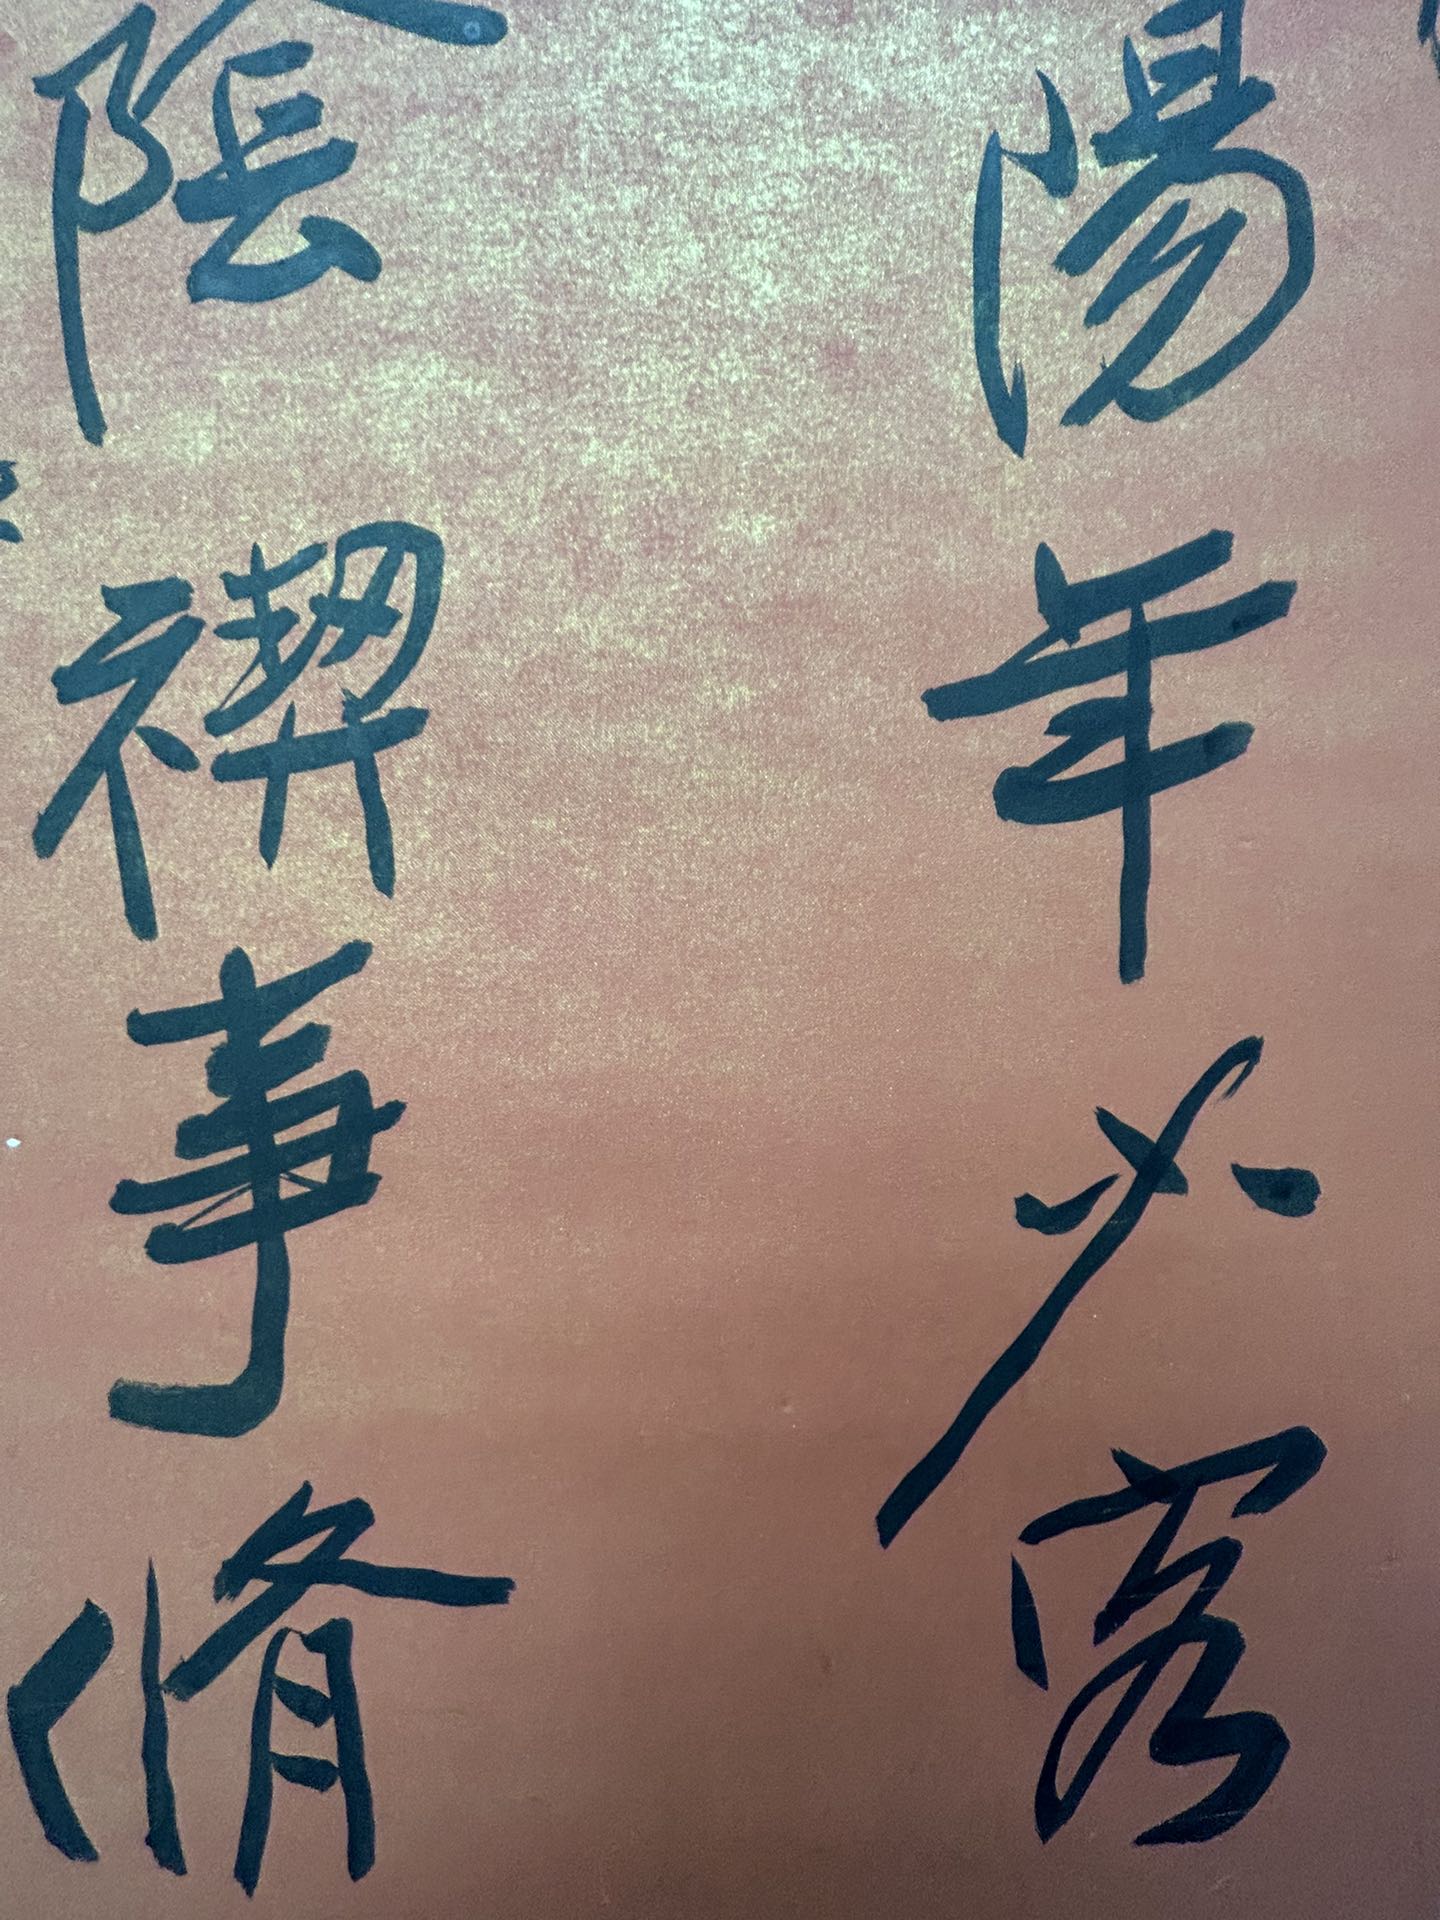 陽年少客
陰禊事脩